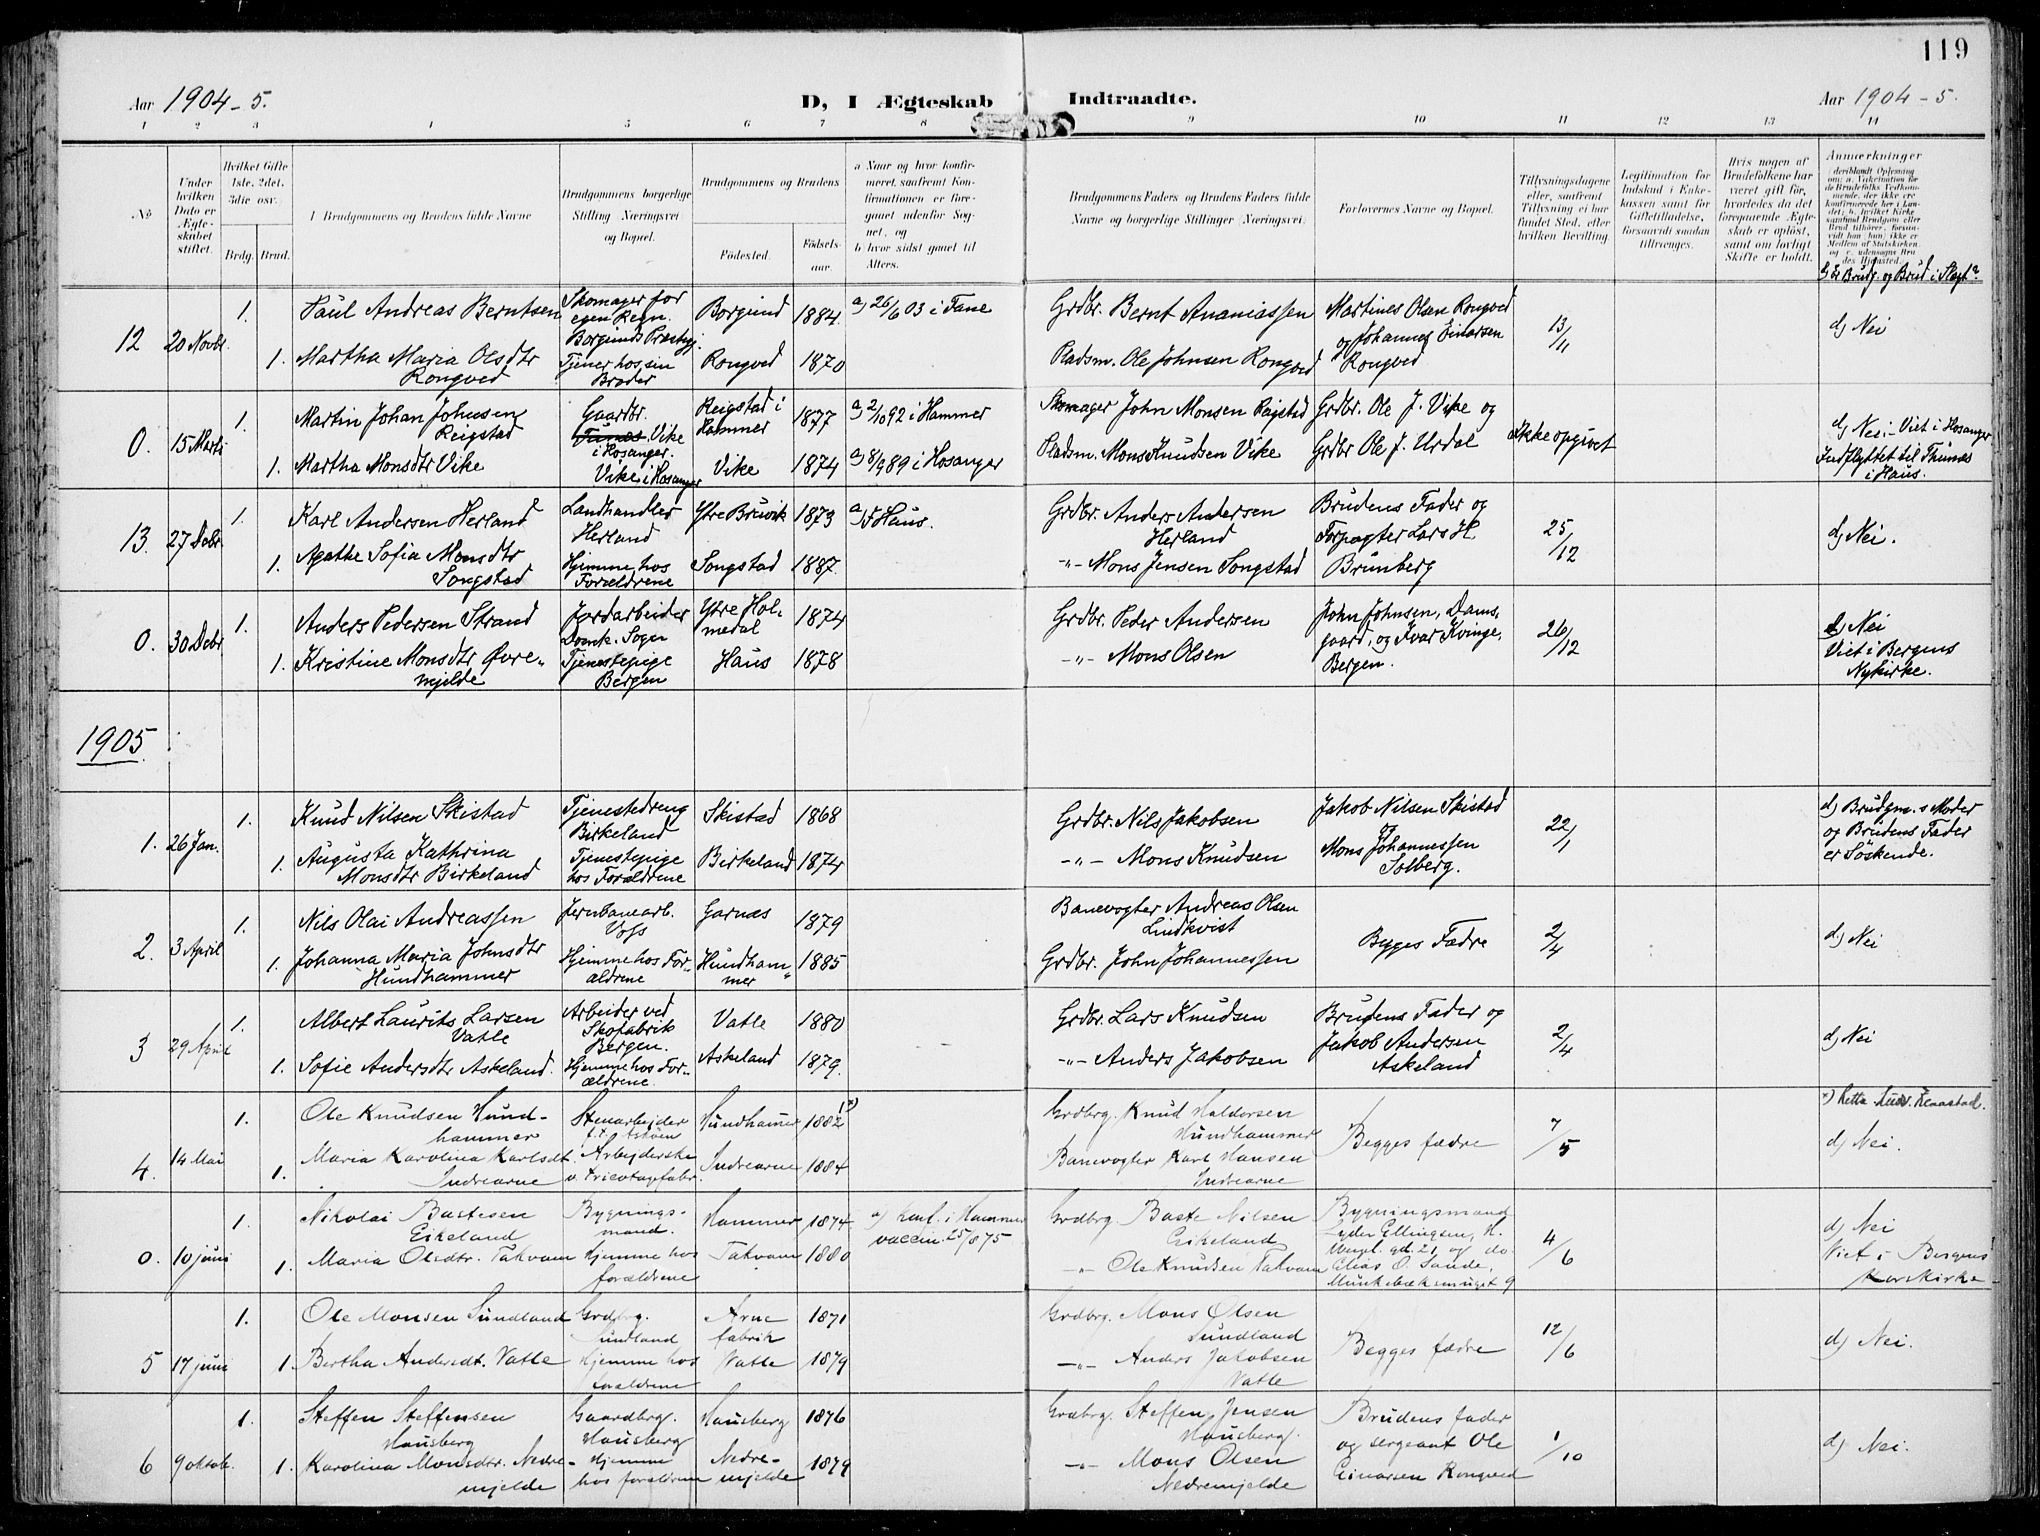 119
Aar 1904-5.
D, I Ægteskab Indtraadte.
Aar 1904-5.
1 2 3 4 5 6 7 8 9 10 11 12 13 14
№
Under hvilken Dato er Ægteskabet stiftet.
Hvilket Gifte 1ste, 2det, 3die osv.
Brdg. Brud.
Brudgommens og Brudens fulde Navne
Brudgommens borgerlige Stilling (Næringsvei) og Bopæl.
Brudgommens og Brudens
Födested.
Födselsaar.
a Naar og hvor konfirmeret, saafremt Konfirmationen er foregaaet udenfor Sognet, og
b hvor sidst gaaet til Alters.
Brudgommens Faders og Brudens Faders fulde Navne og borgerlige Stillinger (Næringsvei).
Forlovernes Navne og Bopæl.
Tillysningsdagene eller, saafremt Tillysning ei har fundet Sted, efter hvilken Bevilling.
Legitimation for Indskud i Enkekassen samt for Giftetilladelse, forsaavidt saadan tiltrænges.
Hvis nogen af Brudefolkene har været gift för, hvorledes da det foregaaende Ægteskab er oplöst, samt om lovligt Skifte er holdt.
Anmærkninger
d) Er Brudg. og Brud i Slegt?
12 20 Novbr. 1. Paul Andreas Berntsen Skomager for egen Regn. Borgunds Præstegj. Borgund 1884 a) 26/6 03 i Fane Grdbr. Bernt Ananiassen Martines Olsen Rongved og Johannes Einarsen Rongved 13/11 d) Nei
1. Martha Maria Olsdtr Rongved Tjener hos sin Broder Rongved 1870 Pladsm. Ole Johnsen Rongved
0. 15 Marts 1. Martin Johan Johnsen Reigstad Gaardbr. Vike i Hosanger. Reigstad i Hammer 1877 a) 2/10 92 i Hammer Skomager John Monsen Reigstad Grdbr. Ole J. Vike og Grdbr Ole J. Urdal Ikke opgivet d) Nei. - Viet i Hosanger Indflyttet til Thunæs i Haus.
1. Martha Monsdtr Vike Vike i Hosanger Vike 1874 a) 8/9 89 i Hosanger Pladsm. Mons Knudsen Vike
13. 27 Debr 1. Karl Andersen Herland Landhandler Herland Ytre Bruvik 1873 a) i Haus. Grdbr. Anders Andersen Herland Brudens Fader og Forpagter Lars H. Brunberg 25/12 d) Nei.
1. Agathe Sofia Monsdtr Songstad Hjemme hos Forældrene Songstad 1887. -"- Mons Jensen Songstad
0. 30 Debr 1. Anders Pedersen Strand Jordarbeider Domk. Sogn Ytre Holmedal 1874 Grdbr. Peder Andersen John Johnsen, Damsgaard, og Ivar Kvinge, Bergen. 26/12 d) Nei Viet i Bergens Nykirke.
1. Kristine Monsdtr Øvremjelde Tjenestepige Bergen Haus 1878 -"- Mons Olsen
1905
1. 26 Jan. 1. Knud Nilsen Skistad Tjenestedreng Birkeland Skistad 1868 Grdbr. Nils Jakobsen Jakob Nilsen Skistad og Mons Johannessen Solberg. 22/1 d) Brudgm.s Moder og Brudens Fader er Söskende.
1. Augusta Kathrina Monsdtr Birkeland Tjenestepige hos Forældrene Birkeland 1874 -"- Mons Knudsen
2. 3 April 1. Nils Olai Andreassen Jernbanearb. Voss Garnæs 1879 Banevogter Andreas Olsen Lindkvist Begges Fædre 2/4 d.) Nei
1. Johanna Maria Johnsdtr Hundhammer Hjemme hos Forældrene Hundhammer 1885 Grdbr. John Johannessen
3 29 April 1. Albert Laurits Larsen Vatle Arbeider ved Skofabrik Bergen. Vatle 1880 Grdbr. Lars Knudsen Brudens Fader og Jakob Andersen Askeland 2/4 d) Nei
1. Sofie Andersdtr Askeland. Hjemme hos Forældrene. Askeland 1879. -"- Anders Jakobsen
4. 14 Mai 1. Ole Knudsen Hundhammer Stenarbejder f.t. Askøen Hundhamer 1882 x) Grdbrg. Knud Haldorsen Hundhammer Begges fædre 7/5 d) Nei.
1. Maria Karolina Karlsdt. Indrearne Arbejderske v. Tricotagefabr. Indrearne 1884 Banevogter Karl Hansen Indrearne
0. 10 juni 1. Nikolai Bastesen Eikeland Bygningsmand. Hammer 1874 a) Konf. i Hammer vaccin. 25/8 75 Grdbrg. Baste Nilsen Eikeland Bygningsmand Lyder Ellingsen, og do. Elias O. Sande, Munkebæksmuget 9 4/6 d) Nei Viet i Bergens Korskirke
1. Maria Olsdtr. Takvam Hjemme hos forældrene Takvam 1880 -"- Ole Knudsen Takvam
5 17 juni 1. Ole Monsen Sundland Grdbrg. Sundland Arne fabrik 1871 Grdbrg. Mons Olsen Sundland Begges fædre 12/6 d) Nei.
1. Bertha Andersdt. Vatle Hjemme hos forældrene Vatle 1879 -"- Anders Jakobsen Vatle
6 9 oktob. 1. Steffen Steffensen Hausberg Gaardbrg. Hausberg Hausberg 1876 Grdbrg. Steffen Jensen Hausberg. Brudens fader og sergeant Ole Einarsen Rongved 1/10 d) Nei.
1. Karolina Monsdtr. Nedremjelde Hjemme hos forældrene Nedremjelde 1879 -"- Mons Olsen Nedremjelde